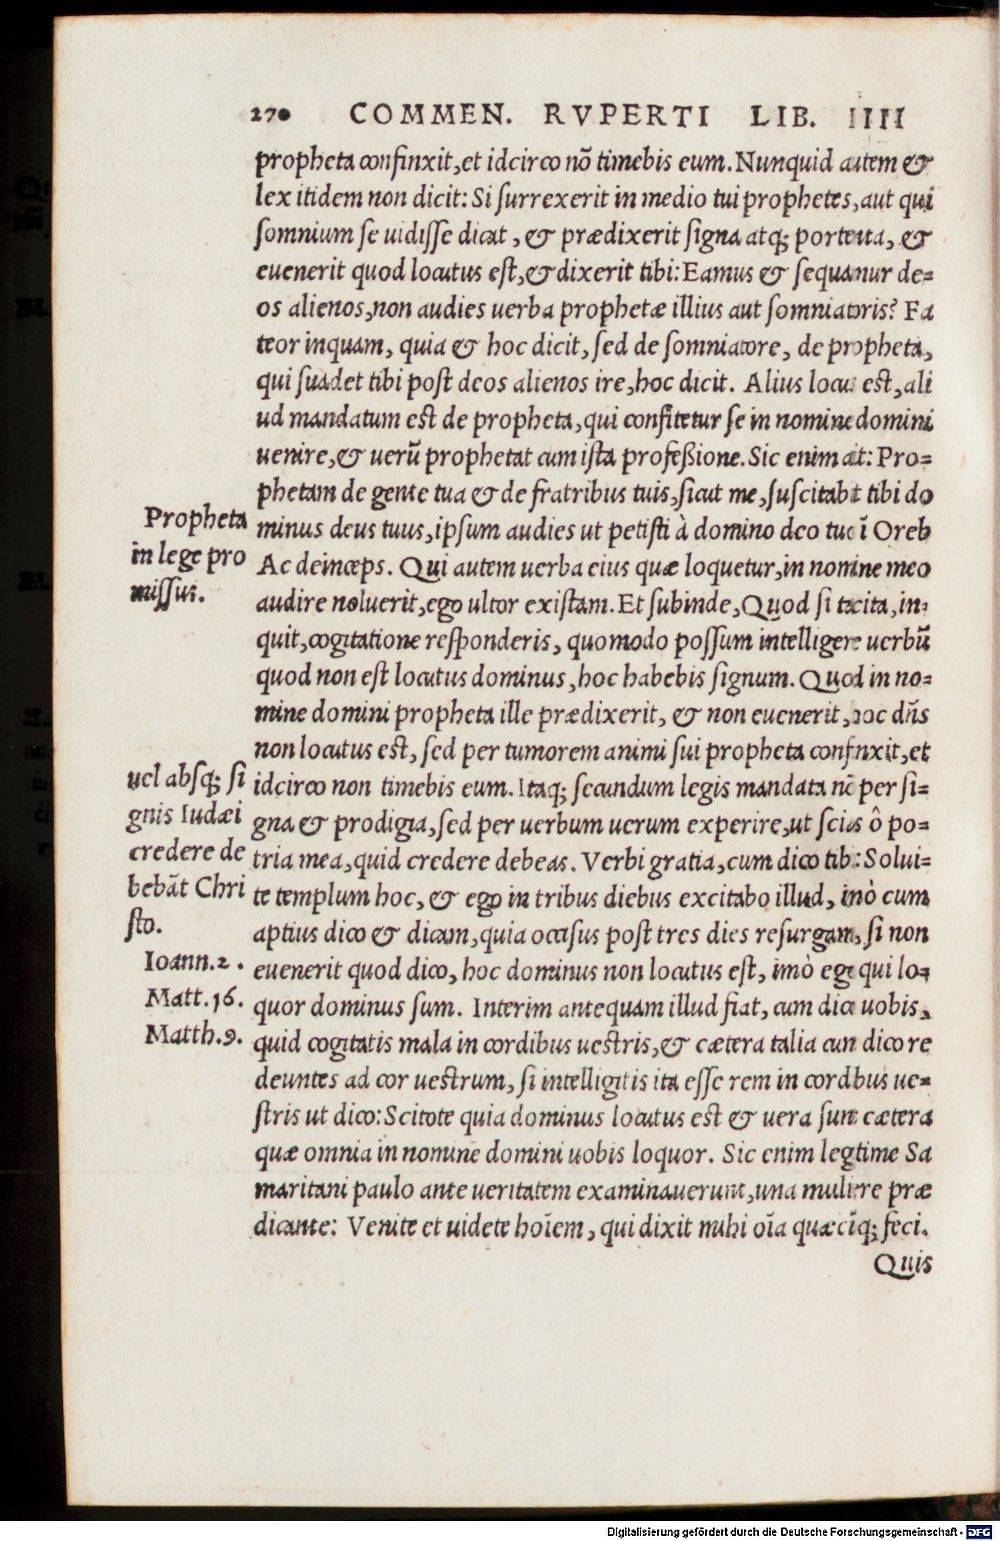 270 COMMEN. RVPERTI LIB. IIII
propheta confinxit, et idcirco nō timebis eum. Nunquid autem &
lex itidem non dicit: Si surrexerit in medio tui prophetes, aut qui
somnium se uidisse dicat, & prædixerit signa atq; portenta, &
euenerit quod locutus est, & dixerit tibi: Eamus & sequamur de=
os alienos, non audies uerba prophetæ illius aut somniatoris? Fa
teor inquam, quia & hoc dicit, sed de somniatore, de propheta,
qui suadet tibi post deos alienos ire, hoc dicit. Alius locus est, ali
ud mandatum est de propheta, qui confitetur se in nomine domini
uenire, & uerū prophetat cum ista professione. Sic enim ait: Pro=
phetam de gente tua & de fratribus tuis, sicut me, suscitabit tibi do
Propheta
in lege pro
missus.
minus deus tuus, ipsum audies ut petisti à domino deo tuo ī Oreb
Ac deinceps. Qui autem uerba eius quæ loquetur, in nomine meo
audire noluerit, ego ultor existam. Et subinde, Quod si tacita, in=
quit, cogitatione responderis, quomodo possum intelligere uerbū
quod non est locutus dominus, hoc habebis signum. Quod in no=
mine domini propheta ille prædixerit, & non euenerit, hoc dñs
non locutus est, sed per tumorem animi sui propheta confinxit, et
uel absq; si
gnis Iudæi
credere de
bebāt Chri
sto.
idcirco non timebis eum. Itaq; secundum legis mandata nō per si=
gna & prodigia, sed per uerbum uerum experire, ut scias ô po=
tria mea, quid credere debeas. Verbi gratia, cum dico tibi: Solui=
te templum hoc, & ego in tribus diebus excitabo illud, imò cum
aptius dico & dicam, quia occisus post tres dies resurgam, si non
Ioann.2.
euenerit quod dico, hoc dominus non locutus est, imò ego qui lo=
Matt.16.
quor dominus sum. Interim antequam illud fiat, cum dico uobis,
Matth.9.
quid cogitatis mala in cordibus uestris, & cætera talia cum dico re
deuntes ad cor uestrum, si intelligitis ita esse rem in cordibus ue=
stris ut dico: Scitote quia dominus locutus est & uera sunt cætera
quæ omnia in nomine domini uobis loquor. Sic enim legitime Sa
maritani paulo ante ueritatem examinauerunt, una muliere præ
dicante: Venite et uidete hoīem, qui dixit mihi oīa quæcūq; feci.
Quis
Digitalisierung gefördert durch die Deutsche Forschungsgemeinschaft - DFG